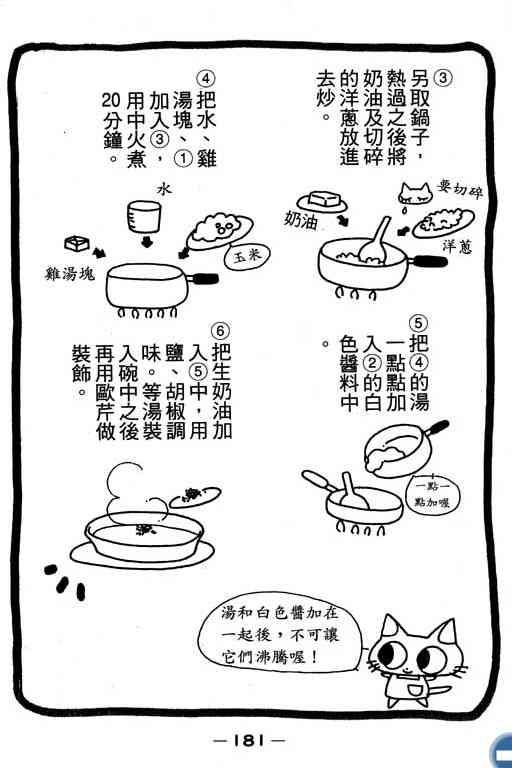 ③
另取鍋子，
熱過之後將
奶油及切碎
的洋蔥放進
去炒。
要切碎
奶油
洋蔥
④
把水、雞
湯塊、①
加入③，
用中火煮
20分鐘。
水
雞湯塊
玉米
⑤
把④的湯
一點點加
入②的白
色醬料中
。
一點一
點加喔
⑥
把生奶油加
入⑤中，用
鹽、胡椒調
味。等湯裝
入碗中之後
再用歐芹做
裝飾。
湯和白色醬加在
一起後，不可讓
它們沸騰喔！
—181—